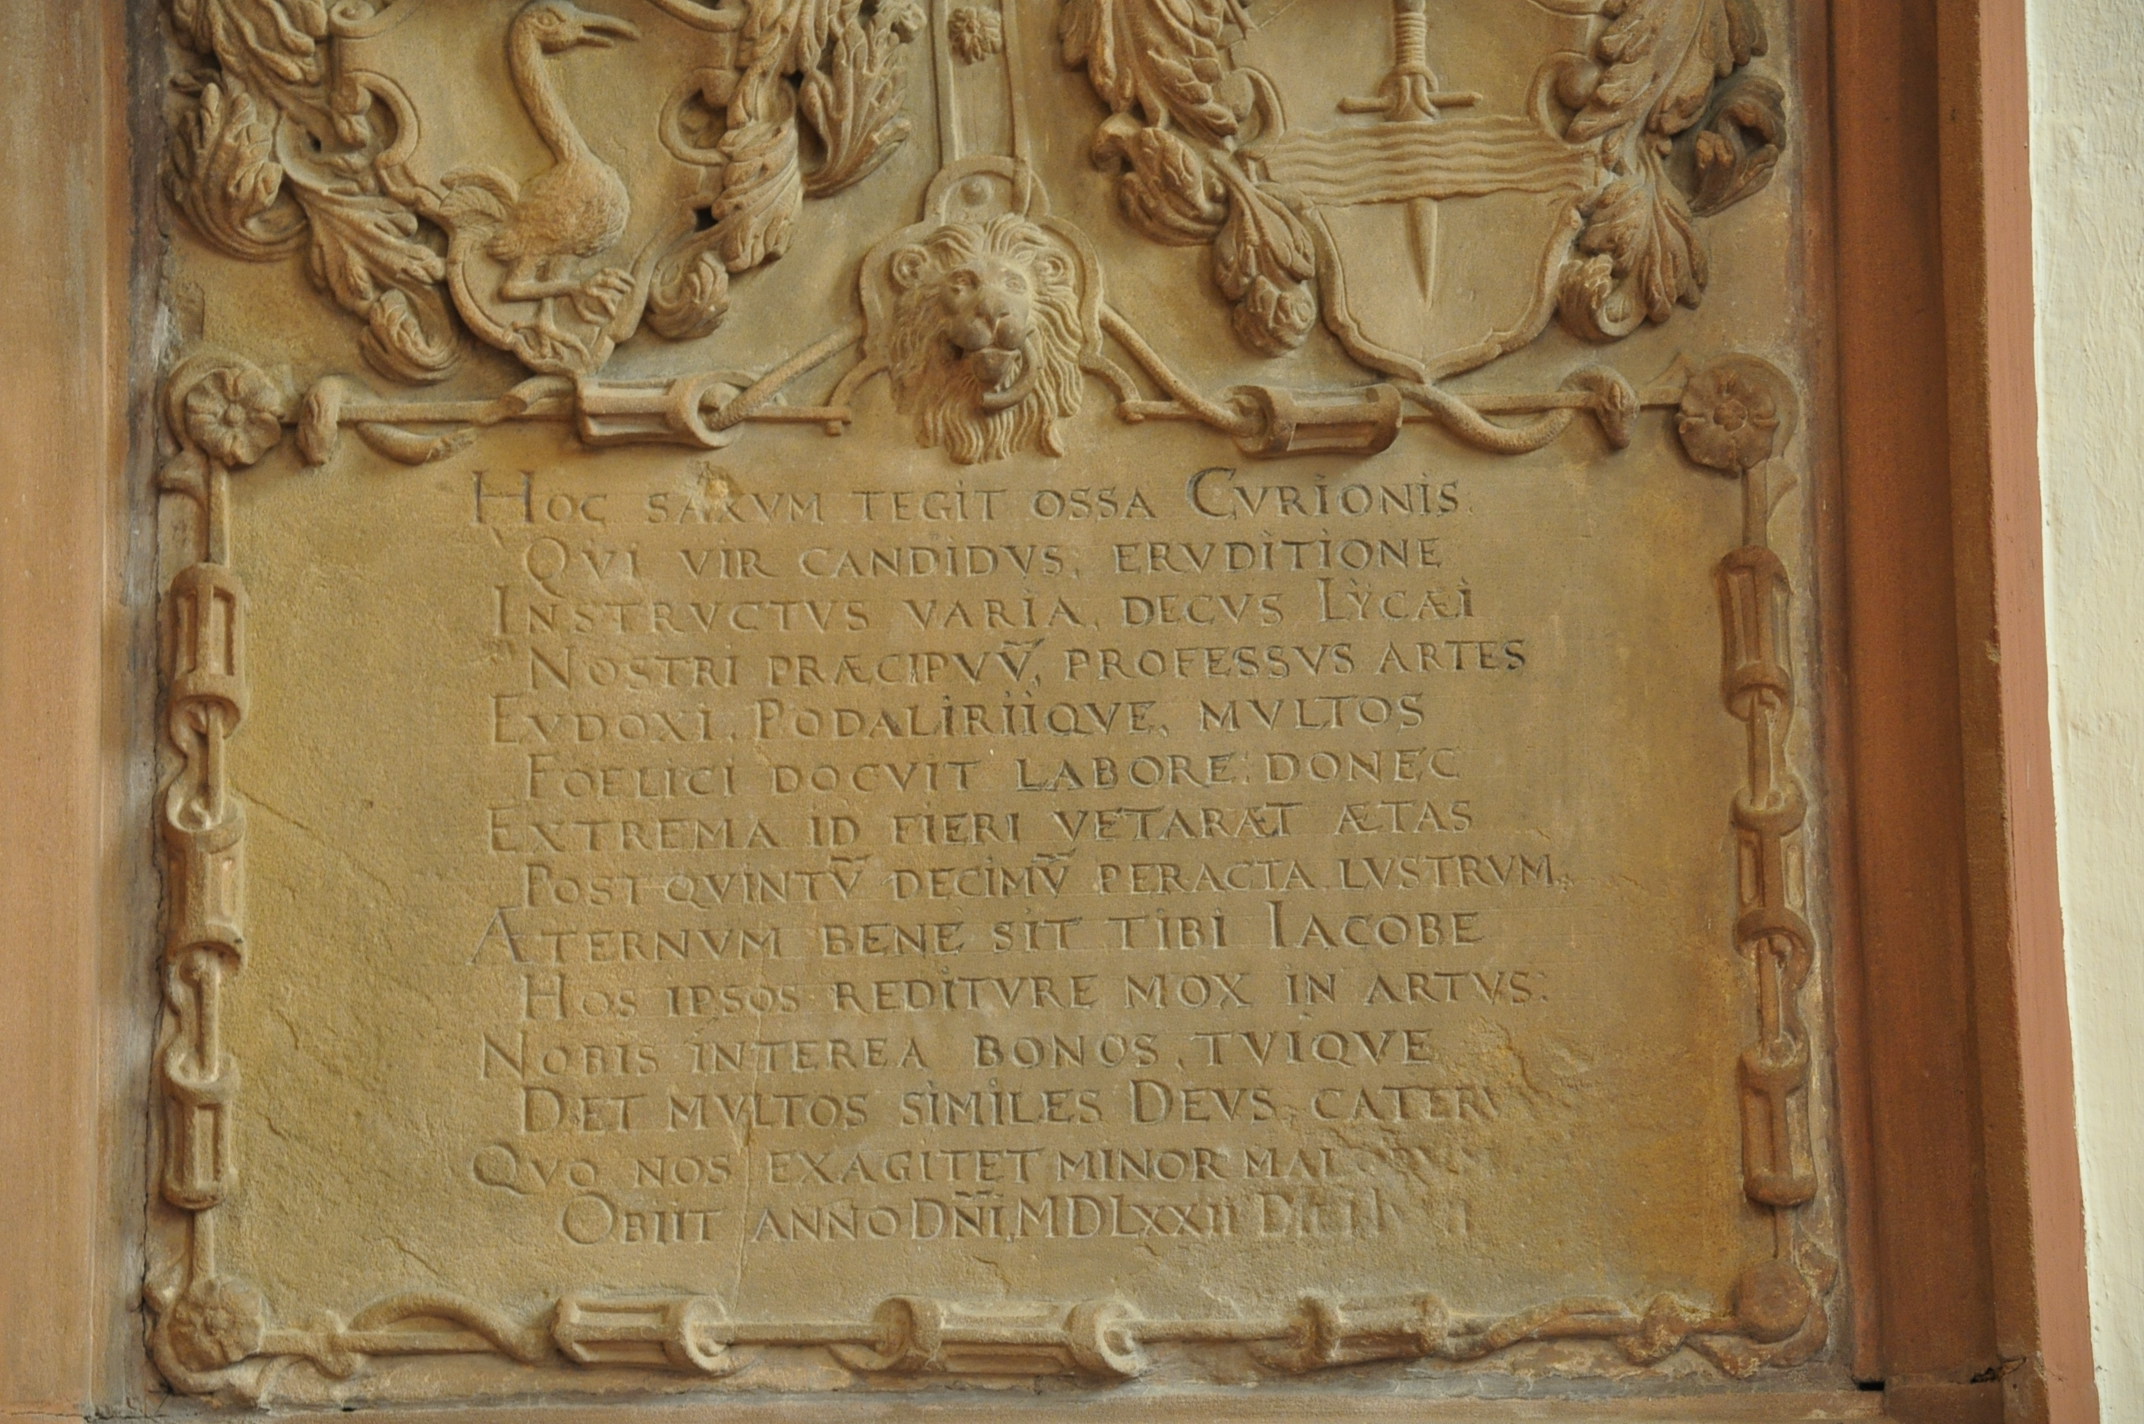 HOC SAXVM TEGIT OSSA CVRIONIS.
QVI VIR CANDIDVS, ERVDITIONE
INSTRVCTVS VARIA, DECVS LYCÆI
NOSTRI PRÆCIPVV̄, PROFESSVS ARTES
EVDOXI, PODALIRIIQVE, MVLTOS
FOELICI DOCVIT LABORE: DONEC
EXTREMA ID FIERI VETARAT ÆTAS
POST QVINTV̄ DECIMV̄ PERACTA LVSTRVM,
ÆTERNVM BENE SIT TIBI IACOBE
HOS IPSOS REDITVRE MOX IN ARTVS:
NOBIS INTEREA BONOS, TVIQVE
DET MVLTOS SIMILES DEVS,
QVO NOS EXAGITET MINOR
OBIIT ANNO DN̄I, MDLXXII